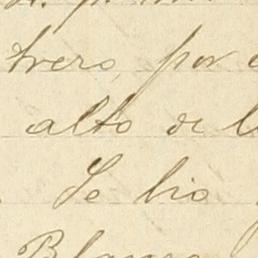 trero, por
alto de l
Se lio
Blanco